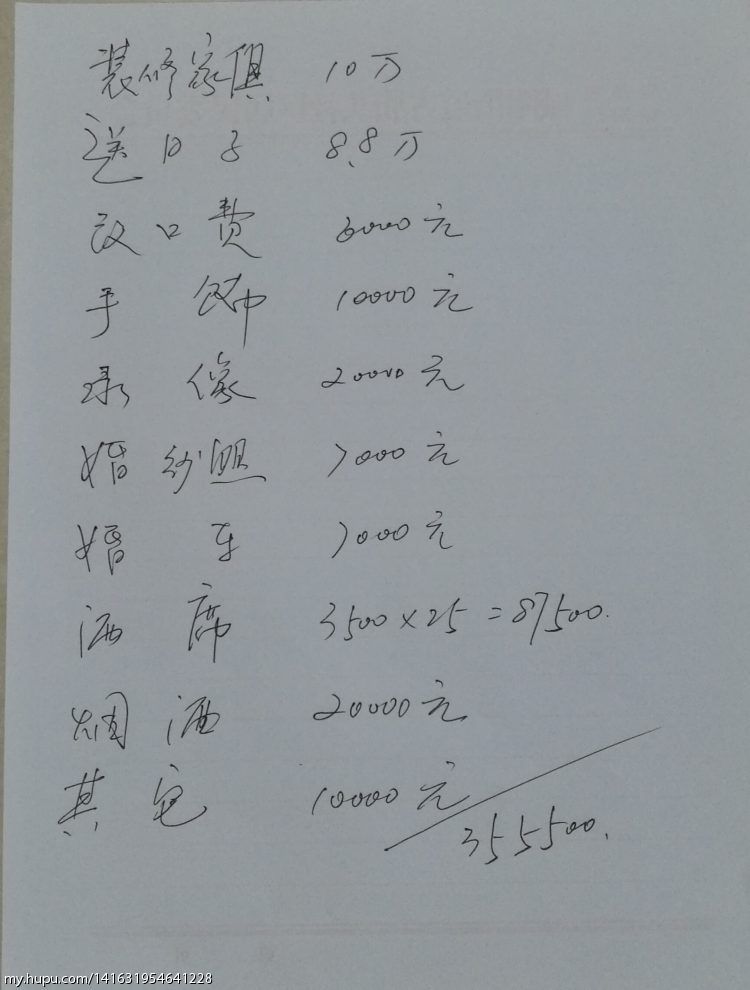 装修家俱 10万
送日子 8.8万
改口费 6000元
手饰 10000元
录像 20000元
婚纱照 7000元
婚车 7000元
酒席 3500×25=87500.
烟酒 20000元
其它 10000元
355500.
my.hupu.com/141631954641228